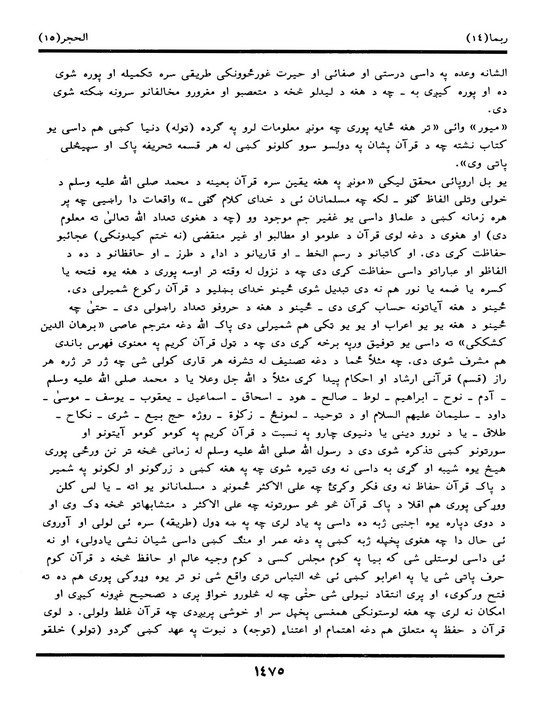 ربما(١٤)
الحجر(١٥)
الشانه وعده په داسې درستی او صفائی او حیرت غورځوونکې طریقې سره تکمیله او پوره شوې
ده او پوره کیږی به ـ چه د هغه د لیدلو څخه د متعصبو او مغرورو مخالفانو سرونه ښکته شوی
دی.
«میور» وائی «تر هغه ځایه پورې چه مونږ معلومات لرو په گرده (توله) دنیا کښې هم داسې یو
کتاب نشته چه د قرآن پشان په دولسو سوو کلونو کښې له هر قسمه تحریفه پاک او سپیڅلی
پاتې وی».
یو بل اروپائی محقق لیکی «مونږ په هغه یقین سره قرآن بعینه د محمد صلی الله علیه وسلم د
خولې وتلی الفاظ گڼو ـ لکه چه مسلمانان ئې د خدای کلام گڼی ـ» واقعات دا راښیی چه پر
هره زمانه کښې د علماؤ داسې یو غفیر جم موجود وو (چه د هغوی تعداد الله تعالیٰ ته معلوم
دی) او هغوی د دغه لوی قرآن د علومو او مطالبو او غیر منقضی (نه ختم کیدونکی) عجائبو
حفاظت کړی دی. او کاتبانو د رسم الخط ـ او قاریانو د اداء د طرز ـ او حافظانو د ده د
الفاظو او عباراتو داسې حفاظت کړی دی چه د نزول له وقته تر اوسه پورې د هغه یوه فتحه یا
کسره یا ضمه یا نور هم نه دی تبدیل شوی ځینو خدای بښلیو د قرآن رکوع شمیرلی دی.
ځینو د هغه آیاتونه حساب کړی دی ـ ځینو د هغه د حروفو تعداد راښولی دی ـ حتیٰ چه
ځینو د هغه یو یو اعراب او یو یو ټکی هم شمیرلی دی پاک الله دغه مترجم عاصی «برهان الدین
کشککی» ته داسې یو توفیق ورپه برخه کړی دی چه د تول قرآن کریم په معنوی فهرس باندې
هم مشرف شوی دی. چه مثلاً ځما د دغه تصنیف له تشرفه هر قاری کولی شی چه ژر تر ژره هر
راز (قسم) قرآنی ارشاد او احکام پیدا کړی مثلاً د الله جل وعلا یا د محمد صلی الله علیه وسلم
ـ آدم ـ نوح ـ ابراهیم ـ لوط ـ صالح ـ هود ـ اسحاق ـ اسماعیل ـ یعقوب ـ یوسف ـ موسیٰ ـ
داود ـ سلیمان علیهم السلام او د توحید ـ لمونځ ـ زکوٰة ـ روژه حج بیع ـ شری ـ نکاح ـ
طلاق ـ یا د نورو دینی یا دنیوی چارو په نسبت د قرآن کریم په کومو کومو آیتونو او
سورتونو کښې تذکره شوی دی د رسول الله صلی الله علیه وسلم له زمانې څخه تر نن ورځې پورې
هیڅ یوه شیبه او گړی به داسې نه وی تیره شوی چه په هغه کښې د زرگونو او لکونو په شمیر
د پاک قرآن حفاظ نه وی فکر وکړئ چه علی الاکثر ځمونږ د مسلمانانو یو اته ـ یا لس کلن
وورکی پوری هم اقلا د پاک قرآن څو څو سورتونه چه علی الاکثر د متشابهاتو څخه ډک وی او
د دوی دپاره یوه اجنبی ژبه ده داسې په یاد لری چه په ښه ډول (طریقه) سره ئې لولی او آوروی
ئې حال دا چه هغوی پخپله ژبه کښې په دغه عمر او منګ کښې داسې شیان نشی یادولی، او نه
ئې داسې لوستلی شی که بیا په کوم مجلس کسی د کوم وجیه عالم او حافظ څخه د قرآن کوم
حرف پاتې شی یا په اعرابو کښې ئې څه التباس ترې واقع شی نو تر یوه وړوکی پورې هم ده ته
فتح ورکوی، او پرې انتقاد نیولی شی حتٰی چه له څلورو خواؤ پرې د تصحیح غږونه کیږی او
امکان نه لری چه هغه لوستونکی همغسې پخپل سر او خوشې پریږدی چه قرآن غلط ولولی. د لوی
قرآن د حفظ په متعلق هم دغه اهتمام او اعتناء (توجه) د نبوت په عهد کښې گردو (تولو) خلقو
١٤٧٥